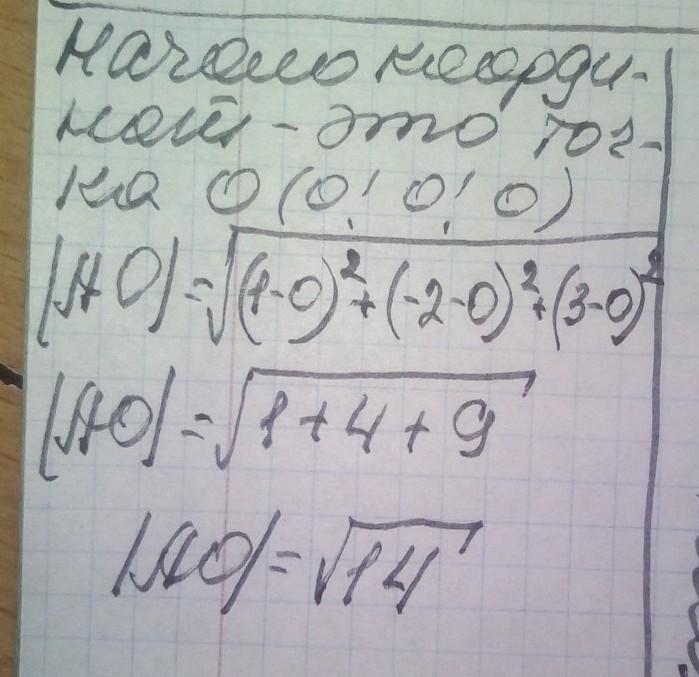 Начало коорди-
нат - это точ-
ка О (0; 0; 0)
|AO| = √(1-0)² + (-2-0)² + (3-0)²
|AO| = √1+4+9
|AO| = √14